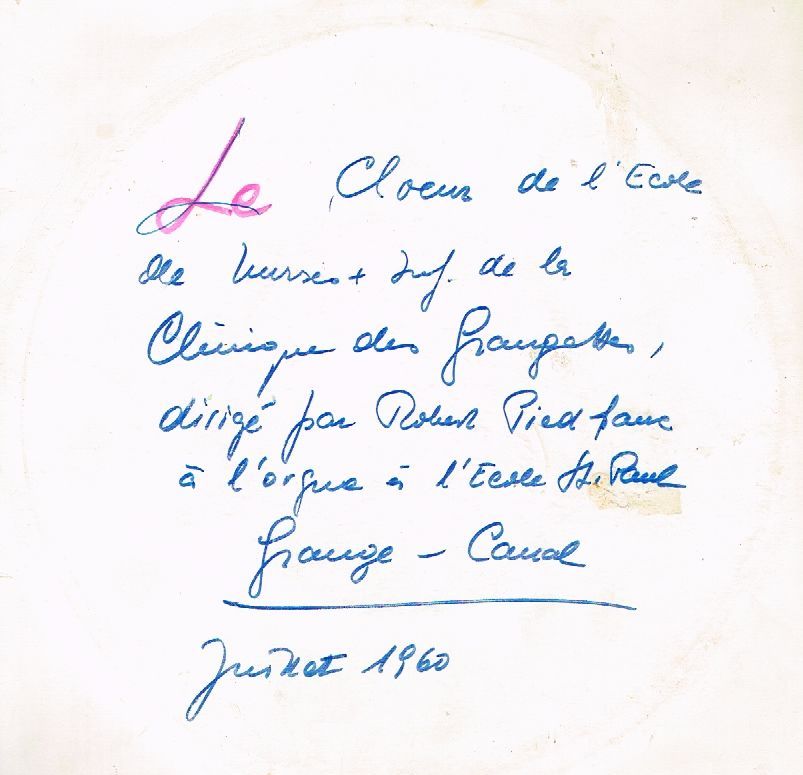 Le Choeur de l'Ecole
de nurses + Inf. de la
Clinique des Grangettes,
dirigé par Robert Piedfanc
à l'orgue à l'Ecole St. Paul
Grange - Canal
Juillet 1960